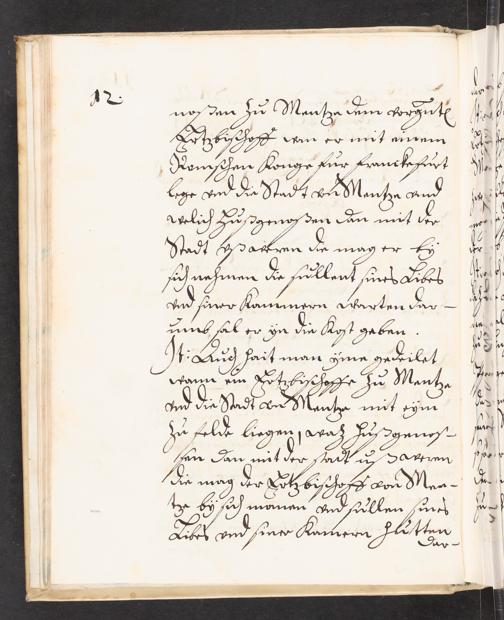 12.
noßen zu Mentze dem vorgut
Ertzbischoff wan er mit einem
Romschen Konge fur franckefurt
lege vnd die Stadt von Mentze vnd
welich Hußgenoßen dan mit der
Stadt vß weren die mag er by
sich nehmen die sullent sines Libes
vnd siner Kammern warten dar-
umb sal er yn die Kost geben.
It: Auch hait man yme gedeilet
wann ein Ertzbischoffe zu Mentze
vnd die Stadt von Mentze mit eym
zu felde liegen, waz Hußgenos-
sen dan mit der stadt uß weren
die mag der Ertzbischoff von Men-
tze by sich manen vnd sullen sines
Libes vnd siner Kamern Hutten
dar-